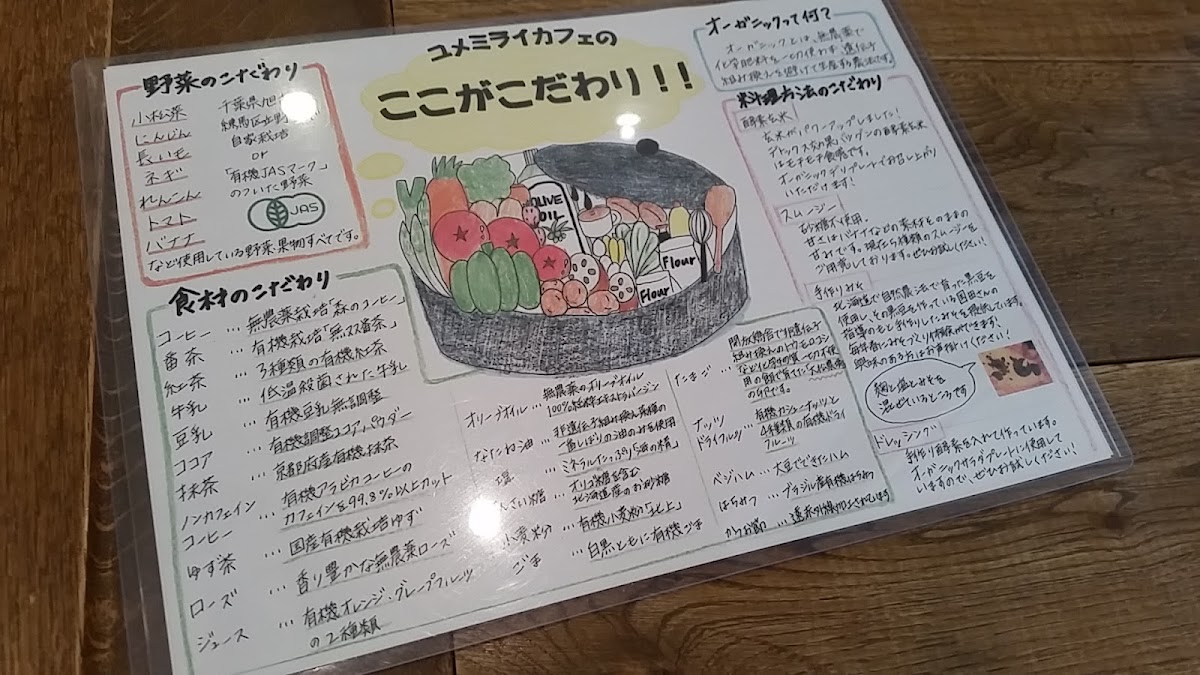 ユメミライカフェの
ここがこだわり!!
野菜のこだわり
小松菜
にんじん
長いも
ネギ
れんこん
トマト
バナナ
千葉県旭
練馬区立野
自家栽培
or
「有機JASマーク」
のついた野菜
JAS
など使用している野菜・果物すべてです。
OLIVE
OIL
Flour
Flour
オーガニックって何?
オーガニックとは、無農薬で
化学肥料を一切使わず、遺伝子
組み換えを避けて生産する農法です。
料理方法のこだわり
酵素玄米
玄米がパワーアップしました!
デトックス効果バツグンの酵素玄米
はモチモチ食感です。
オーガニックデリプレートでお召し上がり
いただけます!
スムージー
お砂糖不使用。
甘さはバナナなどの素材そのままの
甘みです。現在5種類のスムージーを
ご用意しております。ぜひお試しください!
手作りみそ
北海道で自然農法で育った黒豆を
使用し、その黒豆を作っている岡田さんの
指導のもと手作りしたみそを提供しています。
毎年春にみそづくり体験ができます!
興味のある方はお声掛けください!
麹と塩とみそを
混ぜているところです
ドレッシング
手作り酵素を入れて作っています。
オーガニックサラダプレートに使用して
いますので、ぜひお試しください!
食材のこだわり
コーヒー … 無農薬栽培「森のコーヒー」
番茶 … 有機栽培「無双番茶」
紅茶 … 3種類の有機紅茶
牛乳 … 低温殺菌された牛乳
豆乳 … 有機豆乳無調整
ココア … 有機調整ココアパウダー
抹茶 … 京都府産有機抹茶
ノンカフェイン
コーヒー … 有機アラビカコーヒーの
カフェインを99.8%以上カット
ゆず茶 … 国産有機栽培ゆず
ローズ … 香り豊かな無農薬ローズ
ジュース … 有機オレンジ・グレープフルーツ
の2種類
オリーブオイル … 無農薬のオリーブオイル
100%純粋エキストラバージン
なたね油 … 非遺伝子組み換え菜種の
一番しぼりの油のみを使用
塩 … ミネラルたっぷり「海の精」
んさい糖 … オリゴ糖を含む
北海道産のお砂糖
小麦粉 … 有機小麦粉「北上」
ごま … 白黒ともに有機ごま
たまご … 開放鶏舎で非遺伝子
組み換えのトウモロコシ
など化学物質一切不使
用の飼で育てた
の卵です。
ナッツ
ドライフルーツ … 有機カシューナッツと
4種類の有機ドライ
フルーツ
ベジハム … 大豆でできたハム
はちみつ … ブラジル産有機はちみつ
かつお節 … 遠赤外線加工されています